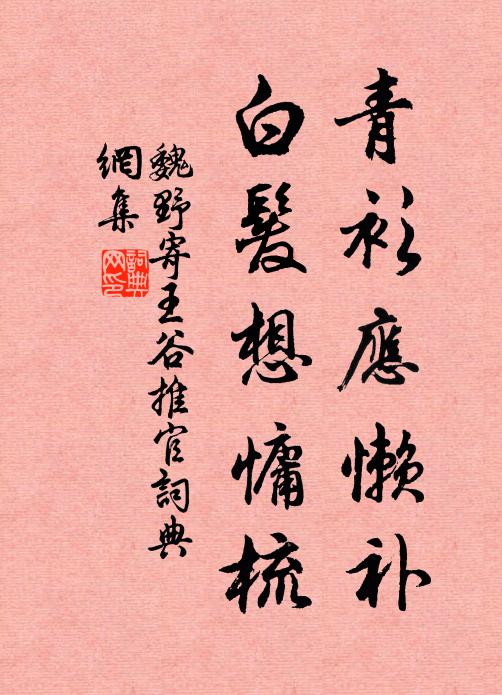 青衫應懒补
白髮想慵梳
魏野寄王谷推官詞典
網集
詞典
网印